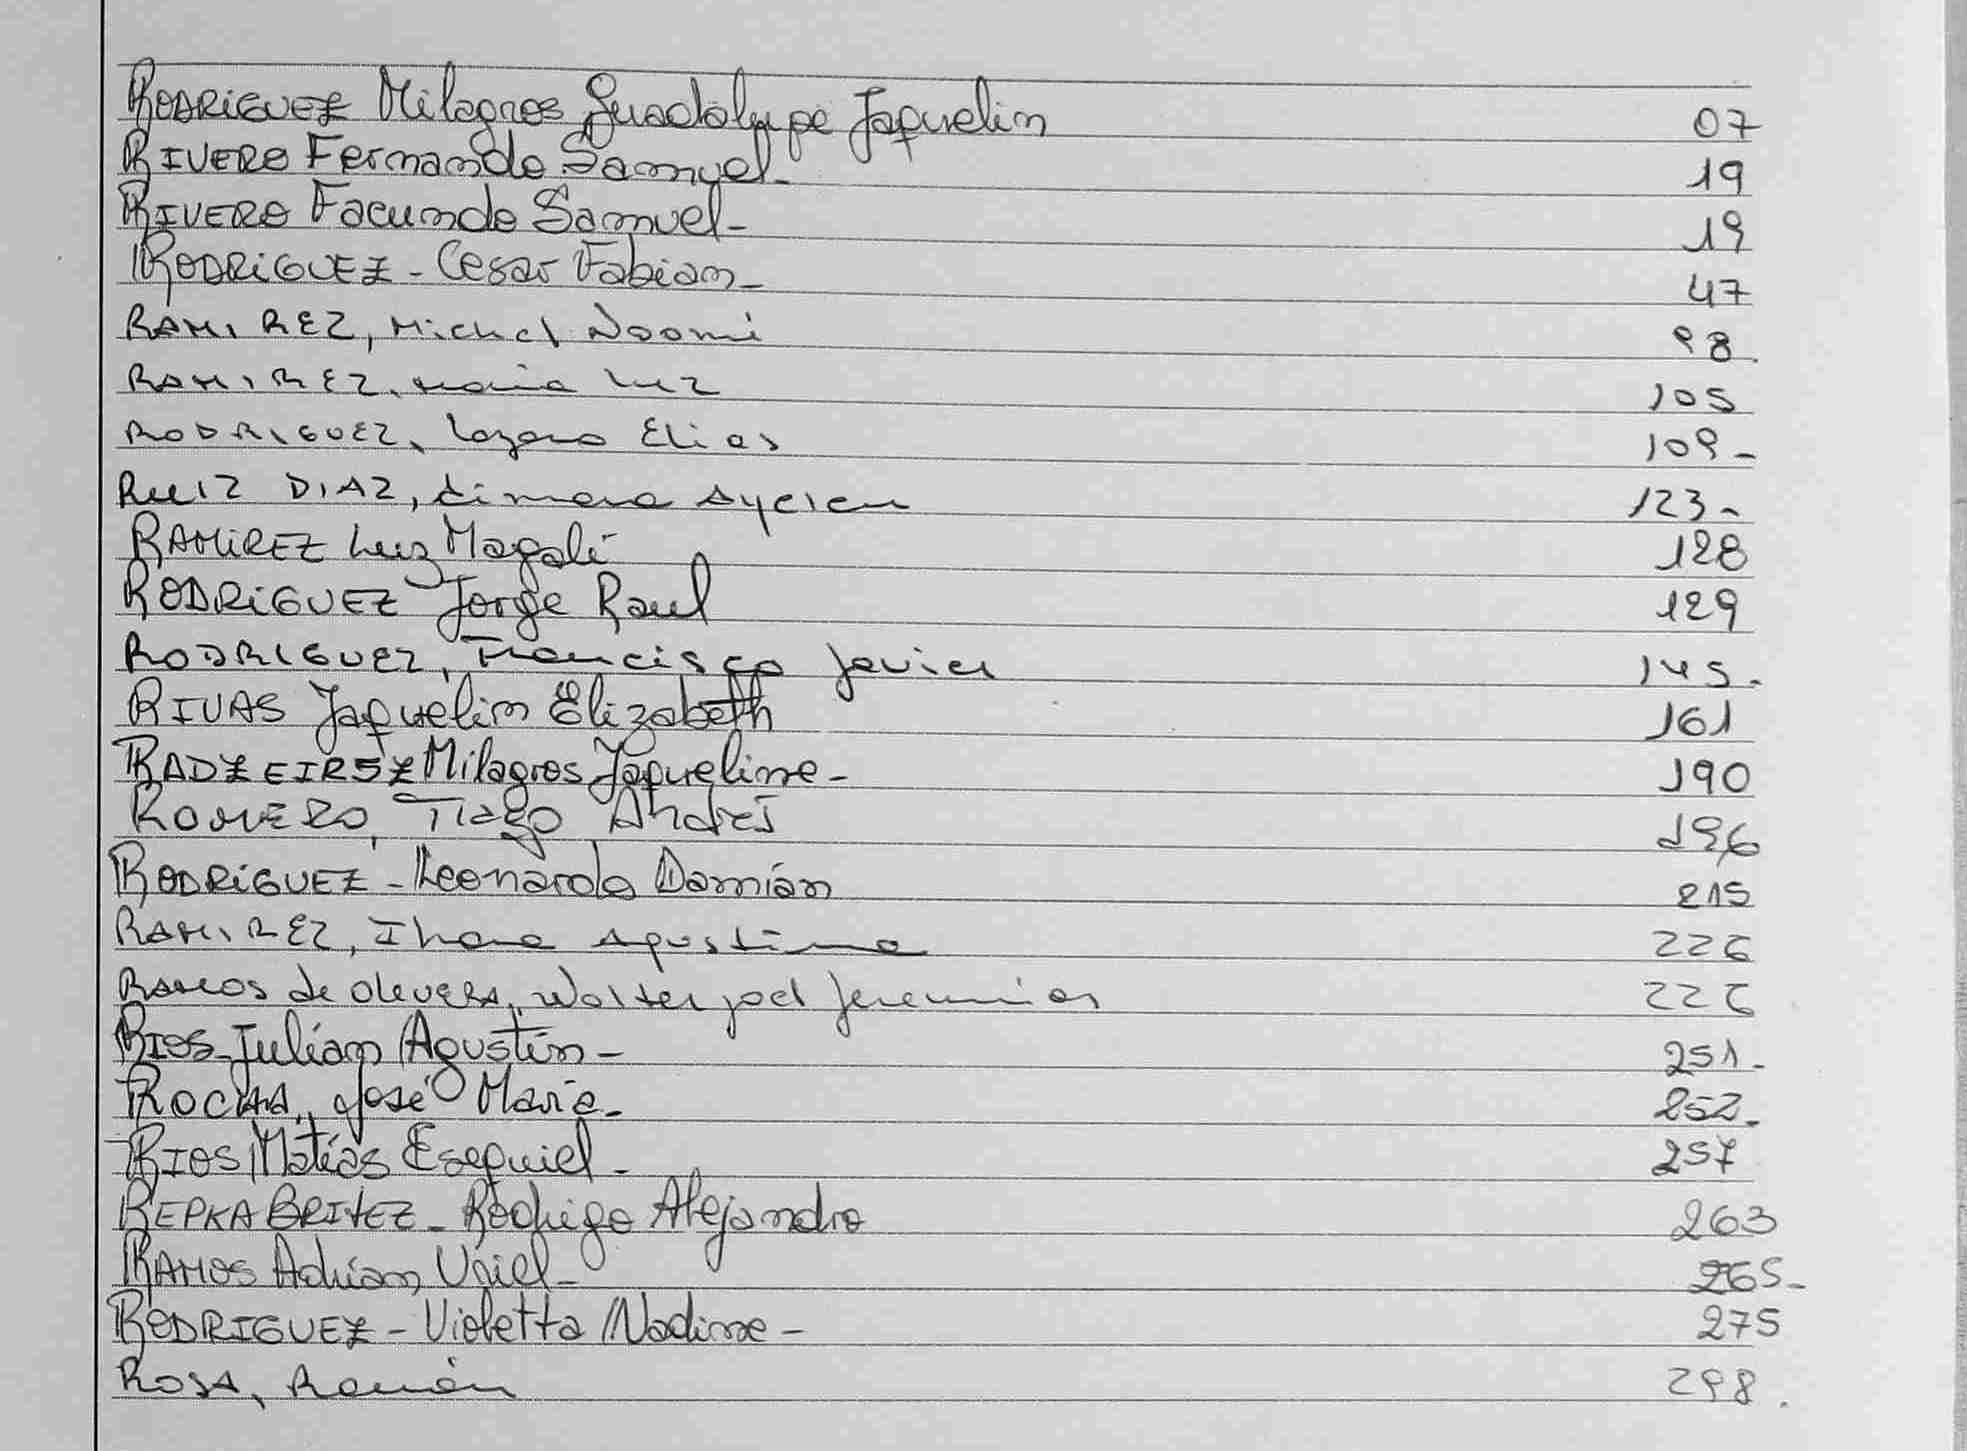 RODRIGUEZ Milagros Guadalupe Jaquelin 07
RIVERO Fernando Samuel- 19
RIVERO Facundo Samuel- 19
RODRIGUEZ - Cesar Fabian- 47
RAMIREZ, Michel Noomi 98.
RAMIREZ, Maria Luz 105
RODRIGUEZ, Lazaro Elias 109-
RUIZ DIAZ, Aycleu 123-
RAMIREZ Luz Magali 128
RODRIGUEZ Jorge Raul 129
RODRIGUEZ, Francisco Javier 145.
RIVAS Jaquelin Elizabeth 161
RADZEIRSZ Milagros Jaqueline- 190
ROMERO, Tiago Andrés 196
RODRIGUEZ - Leonardo Damián 215
RAMIREZ, Ihana Agustina 226
RAMOS de OLEVERA, Walter Joel Jeremias 226
RIOS Julián Agustín- 251-
ROCHA, José María- 252-
RIOS Matías Esequiel- 257
REPKA BRITEZ- Rodrigo Alejandro 263
RAMOS Adrian Uriel- 265-
RODRIGUEZ - Violetta Nadine- 275
ROSA, Ramón 298.